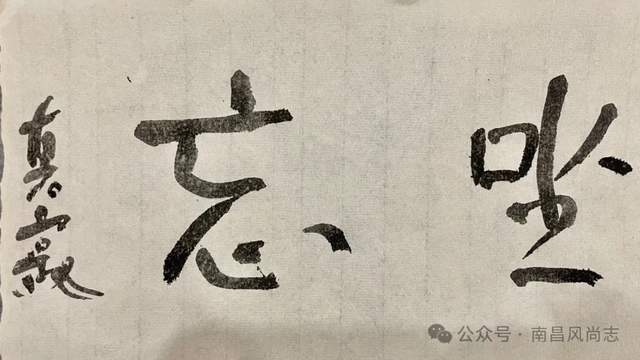 坐忘
真
公众号·南昌风尚志